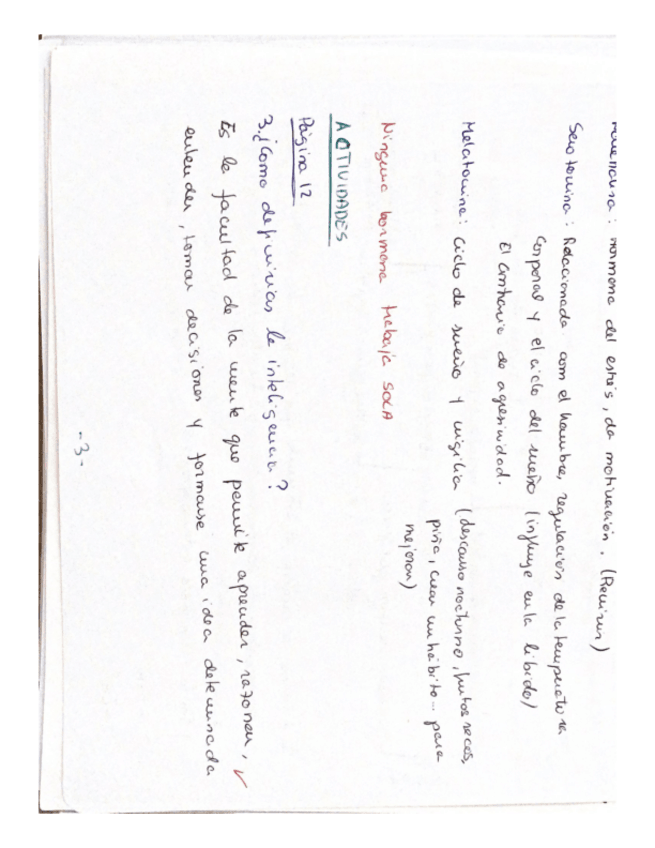 : hormona del estrés, da motivación. (Revisar)
Serotonina: Relacionada com el hambre, regulación de la temperatura
corporal y el ciclo del sueño (influye en la libido)
El contrario de agresividad.
Melatonina: Ciclo de sueño y vigilia (descanso nocturno, frutos secos,
piña, crear un hábito... para
mejorar)
Ninguna hormona trabaja SOLA
ACTIVIDADES
Página 12
3. ¿Como definirias la inteligencia?
Es la facultad de la mente que permite aprender, razonar,
entender, tomar decisiones y formarse una idea determinada
-3-